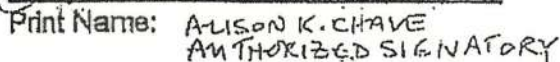 Print Name: ALISON K. CHAVE
AUTHORIZED SIGNATORY